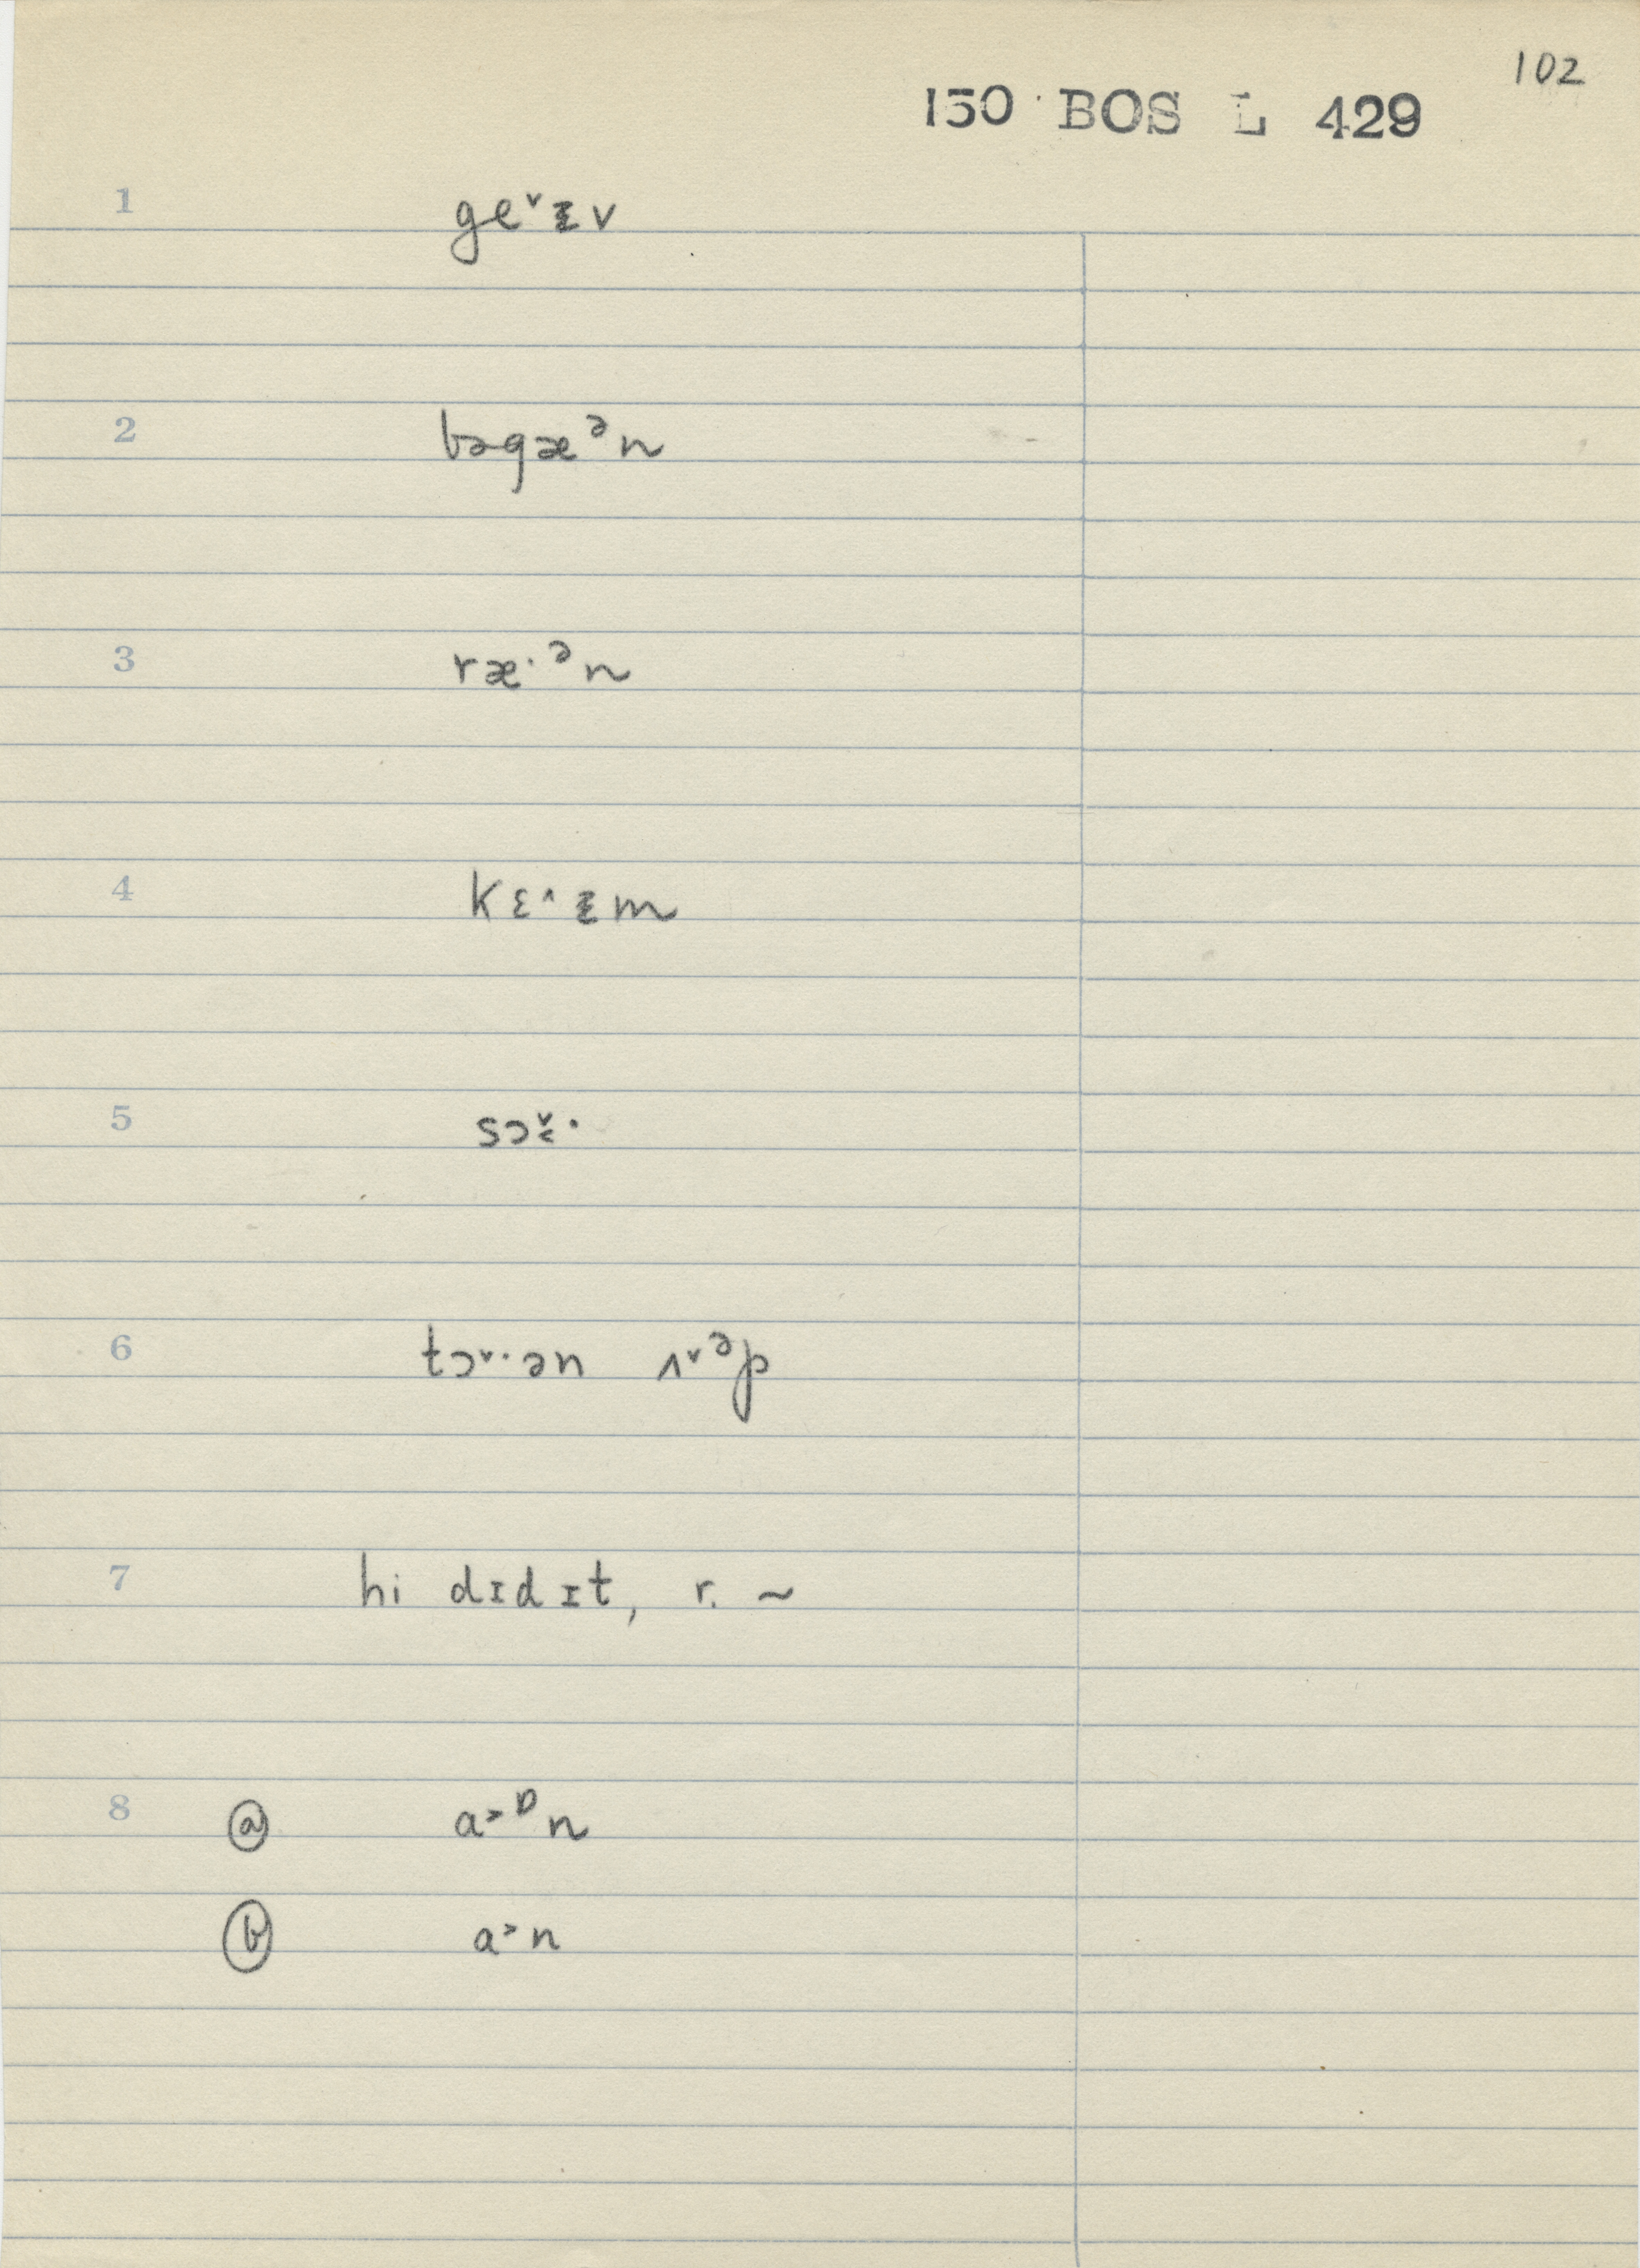 102
150 BOS L 429
1 ge˅ɪ̵v
2 bəgæᵊn
3 ræ·ᵊn
4 kɛ˄ɪ̵m
5 sɔ˅˂·
6 tɔ˅·ən ʌ˅ᵊp
7 hi dɪdɪt, r. ~
8 ⓐ a˃ᴰn
ⓑ a˃n